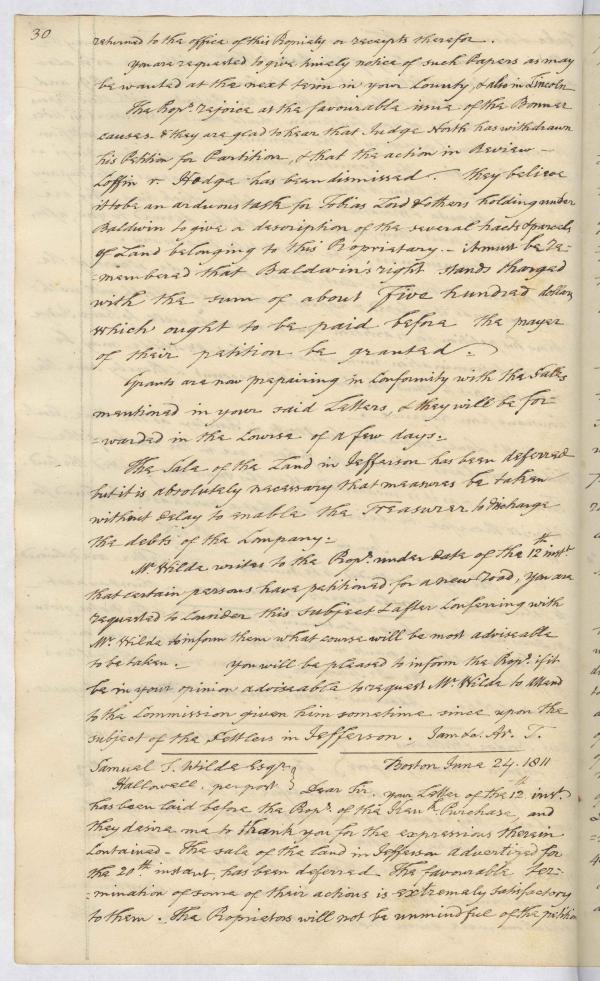 30
returned to the office of this Propriety or receipts therefor.
you are requested to give timely notice of such Papers as may
be wanted at the next term in your County, & also in Lincoln
The Propr. rejoice at the favourable issue of the Bonner
causes. & they are glad to hear that Judge North has withdrawn
his Petition for Partition, & that the action in Review —
Coffin v. Hodge has been dismissed. They believe
it to be an arduous task for Tobias Lord & others holding under
Baldwin to give a description of the several tracts & parcels
of Land belonging to this Propriatary. — it must be re=
=membered that Baldwin's right stands charged
with the sum of about Five hundred dollars
which ought to be paid before the prayer
of their petition be granted.
Grants are now prepairing in Conformity with the Sales
mentioned in your said Letters, & they will be for=
=warded in the Course of a few days.=
The Sale of the Land in Jefferson has been deferred
but it is absolutely necessary that measures be taken
without delay to enable the Treasurer to discharge
the debts of the Company.=
Mr. Wilde writes to the Propr. under date of the 12th inst.
that certain persons have petitioned for a new road, you are
requested to Consider this subject & after Conferring with
Mr. Wilde to inform them what course will be most adviseable
to be taken. you will be pleased to inform the Propr. if it
be in your opinion adviseable to request Mr. Wilde to attend
to the Commission given him sometime since upon the
subject of the Settlers in Jefferson. Sam. Ar. T.
Samuel S. Wilde Esqr. Boston June 24. 1811
Hallowell. per post } Dear Sir. your Letter of the 12th inst.
has been laid before the Propr. of the Kenk. Purchase, and
they desire me to thank you for the expressions therein
Contained. — The sale of the land in Jefferson advertised for
the 20th instant, has been deferred. The favourable ter=
=mination of some of their actions is extremely satisfactory
to them. The Proprietors will not be unmindful of the petition